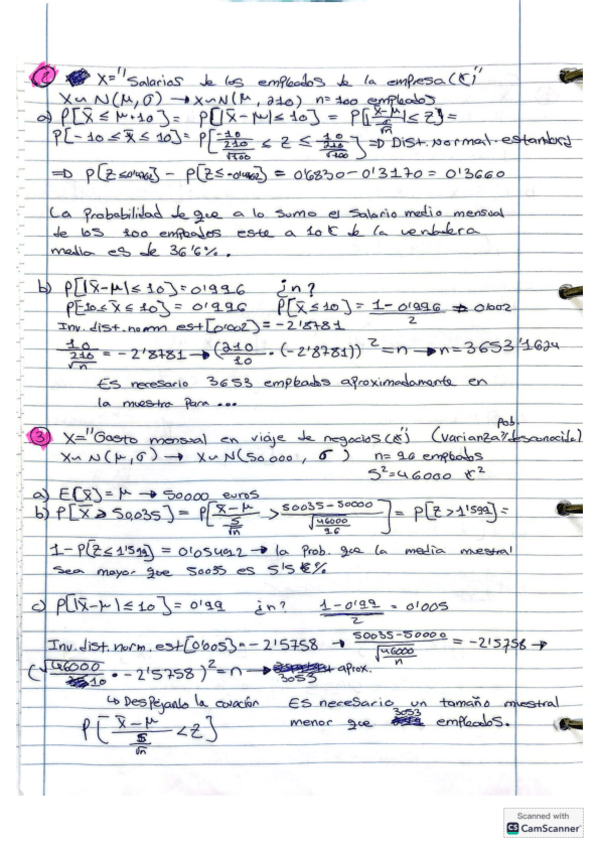 2 X="Salarios de los empleados de la empresa (€)"
X∼N(μ,σ) → X∼N(μ, 210) n=100 empleados
a) P[X̄ ≤ μ+10] = P[|X̄-μ| ≤ 10] = P[(X̄-μ)/(σ/√n) ≤ Z] =
P[-10 ≤ X̄ ≤ 10] = P[-10/(210/√100) ≤ Z ≤ 10/(210/√100)] ⇒ Dist. Normal. estandar
⇒ P[Z≤0'4762] - P[Z≤-0'4762] = 0'6830 - 0'3170 = 0'3660
La Probabilidad de que a lo sumo el salario medio mensual
de los 100 empleados este a 10€ de la verdadera
media es de 36'6%.
b) P[|X̄-μ| ≤ 10] = 0'996 ¿n?
P[-10 ≤ X̄ ≤ 10] = 0'996 P[X̄ ≤ 10] = (1-0'996)/2 → 0'002
Inv. dist. norm est [0'002] = -2'8781
10/(210/√n) = -2'8781 → (210/10 · (-2'8781))² = n → n = 3653'1624
Es necesario 3653 empleados aproximadamente en
la muestra para ...
3 X="Gasto mensual en viaje de negocios (€)" (varianza pob. desconocida)
X∼N(μ,σ) → X∼N(50.000, σ) n= 26 empleados
S²=46000 €²
a) E[X̄] = μ → 50000 euros
b) P[X̄ ≥ 50,035] = P[(X̄-μ)/(S/√n) > (50035-50000)/√(46000/26)] = P[Z > 1'599] =
1-P[Z ≤ 1'599] = 0'05492 → la Prob. que la media muestral
sea mayor que 50035 es 5'5%
c) P[|X̄-μ| ≤ 10] = 0'99 ¿n? (1-0'99)/2 = 0'005
Inv. dist. norm. est [0'005] = -2'5758 → (50035-50000)/√(46000/n) = -2'5758 →
(√46000/10 · -2'5758)² = n → 3053 aprox.
↳ Despejando la ecuación Es necesario un tamaño muestral
P[(X̄-μ)/(S/√n) < Z] menor que 3053 empleados.
Scanned with
CS CamScanner